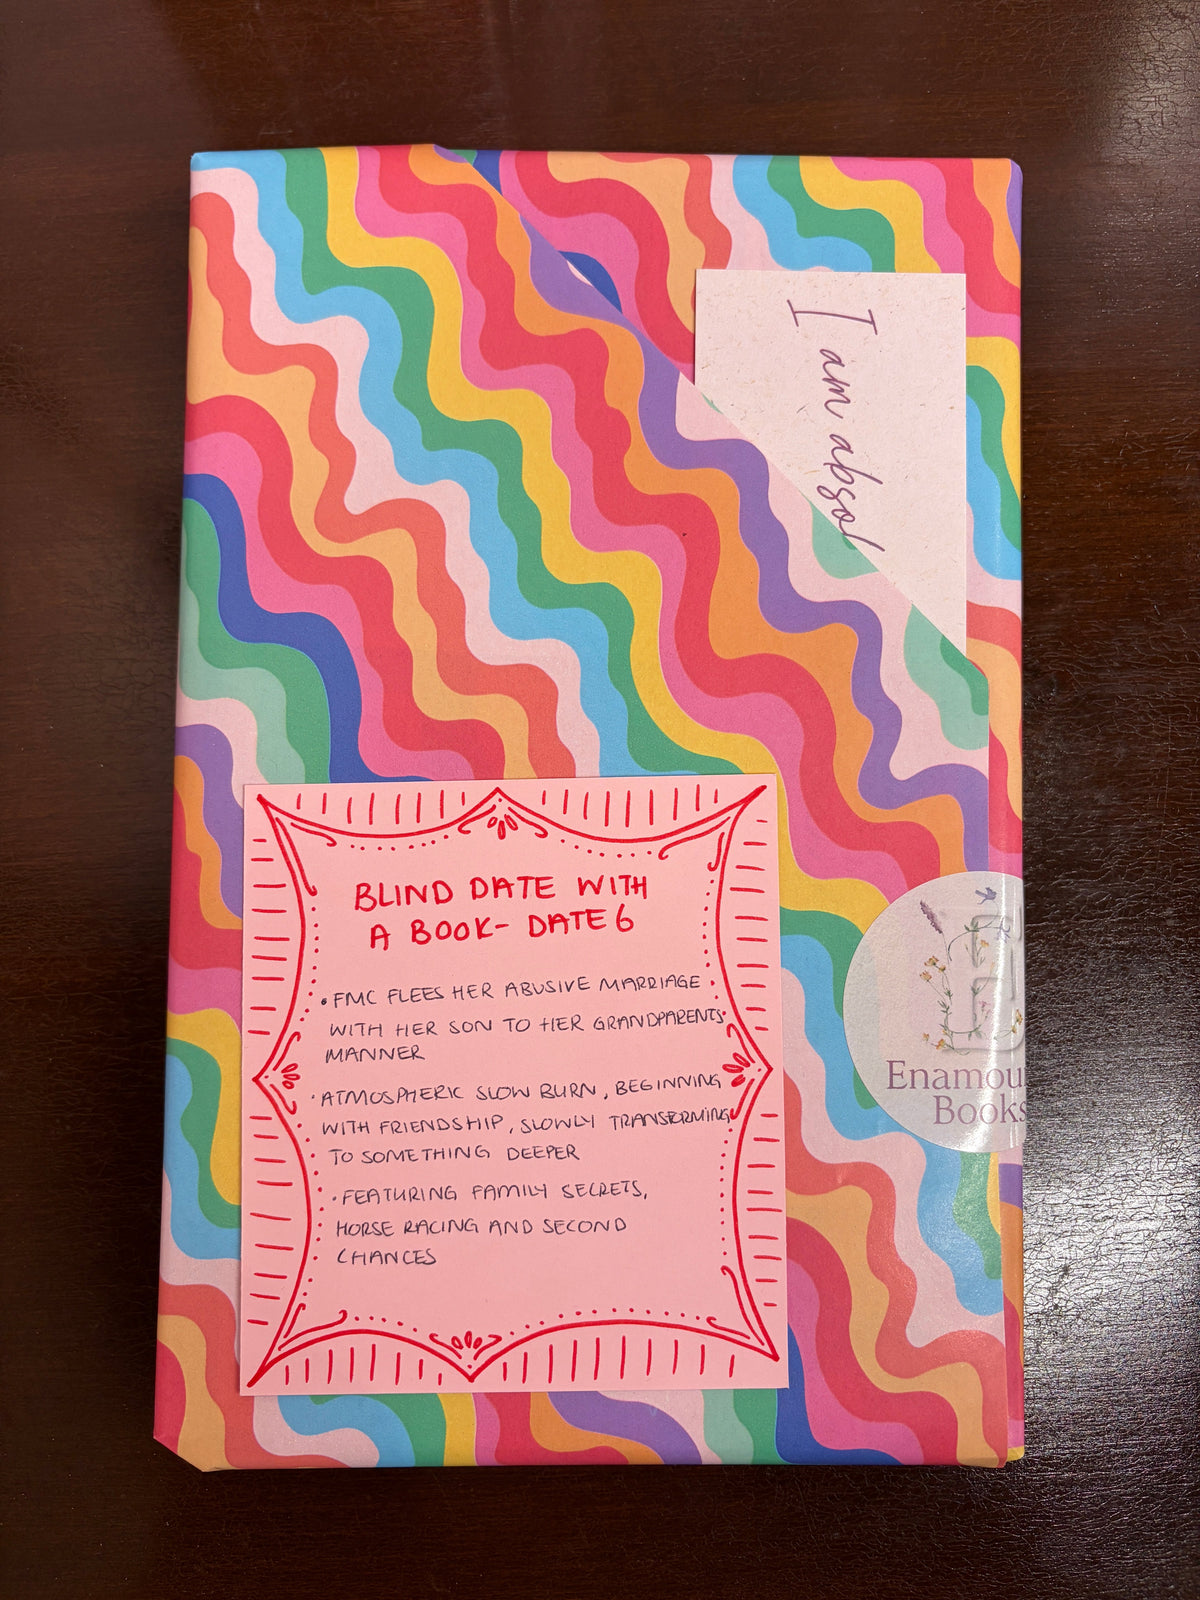 I am absol
BLIND DATE WITH
A BOOK- DATE 6
• FMC FLEES HER ABUSIVE MARRIAGE
WITH HER SON TO HER GRANDPARENTS
MANNER
• ATMOSPHERIC SLOW BURN, BEGINNING
WITH FRIENDSHIP, SLOWLY TRANSFORMING
TO SOMETHING DEEPER
• FEATURING FAMILY SECRETS,
HORSE RACING AND SECOND
CHANCES
Enamou
Books